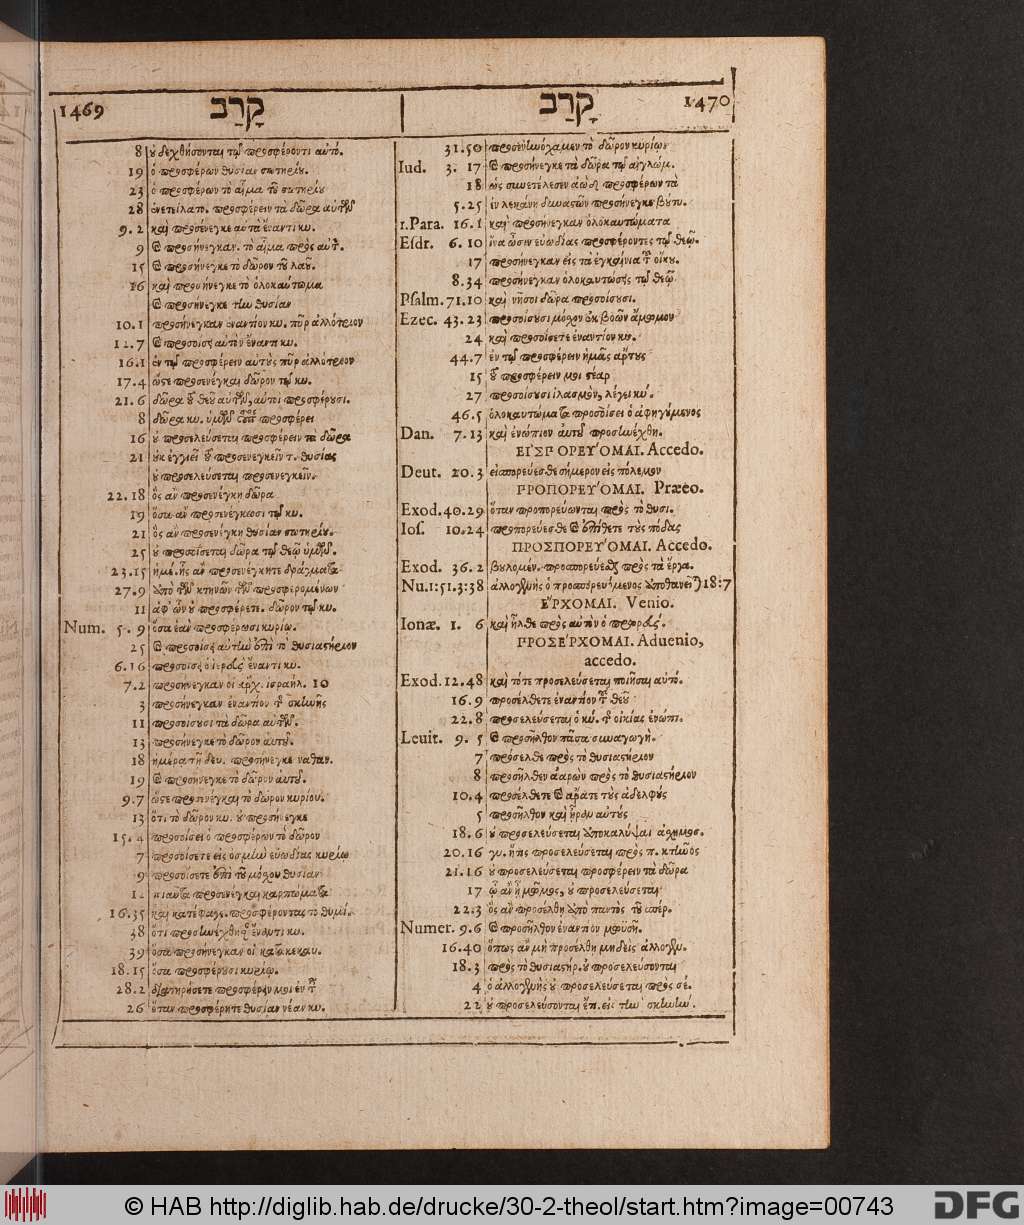 1469 קָרַב קָרַב 1470
8 οὐ δεχθήσονται τῷ προσφέροντι αὐτό.
19 ὁ προσφέρων θυσίαν σωτηρίου.
23 ὁ προσφέρων τὸ αἷμα τοῦ σωτηρίου
28 ἐνετείλατο. προσφέρειν τὰ δῶρα αὐτῶν
9.2 καὶ προσένεγκε αὐτὰ ἔναντι κυ.
9 καὶ προσήνεγκαν. τὸ αἷμα πρὸς αὐτ.
15 καὶ προσήνεγκε τὸ δῶρον τοῦ λαοῦ.
16 καὶ προσήνεγκε τὸ ὁλοκαύτωμα
καὶ προσήνεγκε τὴν θυσίαν
10.1 προσήνεγκαν ἐναντίον κυ. πῦρ ἀλλότριον
12.7 καὶ προσοίσει αὐτὸν ἔναντι κυ.
16.1 ἐν τῷ προσφέρειν αὐτοὺς πῦρ ἀλλότριον
17.4 ὥστε προσενέγκαι δῶρον τῷ κυ.
21.6 δῶρα τοῦ θεοῦ αὐτῶν, αὐτοὶ προσφέρουσι.
8 δῶρα κυ. ὑμῶν οὗτος προσφέρει
16 οὐ προσελεύσεται προσφέρειν τὰ δῶρα
21 οὐκ ἐγγιεῖ τοῦ προσενεγκεῖν τ. θυσίας
οὐ προσελεύσεται προσενεγκεῖν.
22.18 ὃς ἂν προσενέγκῃ δῶρα
19 ὅσα ἂν προσενέγκωσι τῷ κυ.
21 ὃς ἂν προσενέγκῃ θυσίαν σωτηρίου.
25 οὐ προσοίσεται δῶρα τῷ θεῷ ὑμῶν.
23.15 ἡμέ. ἧς ἂν προσενέγκητε δράγματα
27.9 ἀπὸ τῶν κτηνῶν τῶν προσφερομένων
11 ἀφ' ὧν οὐ προσφέρετε. δῶρον τῷ κυ.
Num. 5.9 ὅσα ἐὰν προσφέρωσι κυρίῳ.
25 καὶ προσοίσει αὐτὴν ἐπὶ τὸ θυσιαστήριον
6.16 προσοίσει ὁ ἱερεὺς ἔναντι κυ.
7.2 προσήνεγκαν οἱ ἄρχ. ἰσραήλ. 10
3 προσήνεγκαν ἐναντίον τῆς σκηνῆς
11 προσοίσουσι τὰ δῶρα αὐτῶν.
13 προσήνεγκε τὸ δῶρον αὐτοῦ.
18 ἡμέρα τῇ δευ. προσήνεγκε ναθαν.
19 καὶ προσήνεγκε τὸ δῶρον αὐτοῦ.
9.7 ὥστε προσενέγκαι τὸ δῶρον κυρίου.
13 ὅτι τὸ δῶρον κυ. οὐ προσήνεγκε
15.4 προσοίσει ὁ προσφέρων τὸ δῶρον
7 προσοίσετε εἰς ὀσμὴν εὐωδίας κυρίῳ
9 προσοίσετε ἐπὶ τοῦ μόσχου θυσίαν
προσενέγκαι καρπώματα
16.35 καὶ κατέφαγε. προσφέροντας τὸ θυμί.
38 ὅτι προσηνέχθησαν ἔναντι κυ.
39 ὅσα προσήνεγκαν οἱ κατακεκαυ.
18.15 ὅσα προσφέρουσι κυρίῳ.
28.2 διατηρήσετε προσφέρειν μοι ἐν τῇ
26 ὅταν προσφέρητε θυσίαν νέαν κυ.
31.50 προσενηνόχαμεν τὸ δῶρον κυρίῳ
Iud. 3.17 καὶ προσήνεγκε τὰ δῶρα τῷ αἰγλώμ.
18 ὡς συνετέλεσεν ἀὼδ προσφέρων τὰ
5.25 ἐν λεκάνῃ δυναστῶν προσήνεγκε βουτυ.
1.Para. 16.1 καὶ προσήνεγκαν ὁλοκαυτώματα
Esdr. 6.10 ἵνα ὦσιν εὐωδίας προσφέροντες τῷ θεῷ.
17 προσήνεγκαν εἰς τὰ ἐγκαίνια τοῦ οἴκου.
8.34 προσήνεγκαν ὁλοκαυτώσεις τῷ θεῷ
Psalm. 71.10 καὶ νῆσοι δῶρα προσοίσουσι.
Ezec. 43.23 προσοίσουσι μόσχον ἐκ βοῶν ἄμωμον
24 καὶ προσοίσετε ἐναντίον κυ.
44.7 ἐν τῷ προσφέρειν ἡμᾶς ἄρτους
15 τοῦ προσφέρειν μοι στέαρ
27 προσοίσουσι ἱλασμὸν, λέγει κύ.
46.5 ὁλοκαυτώματα προσοίσει ὁ ἀφηγούμενος
Dan. 7.13 καὶ ἐνώπιον αὐτοῦ προσηνέχθη.
ΕΙΣΠΟΡΕΥΟΜΑΙ. Accedo.
Deut. 20.3 εἰσπορεύεσθε σήμερον εἰς πόλεμον
ΠΡΟΠΟΡΕΥΟΜΑΙ. Præeo.
Exod. 40.29 ὅταν προπορεύωνται πρὸς τὸ θυσι.
Ios. 10.24 προπορεύεσθε καὶ ἐπίθετε τοὺς πόδας
ΠΡΟΣΠΟΡΕΥΟΜΑΙ. Accedo.
Exod. 36.2 βουλομέν. προσπορεύεσθαι πρὸς τὰ ἔργα.
Nu. 1:51.3:38 ἀλλογενὴς ὁ προσπορευόμενος ἀποθανεῖται 18:7
ΕΡΧΟΜΑΙ. Venio.
Ionæ. 1. 6 καὶ ἦλθε πρὸς αὐτὸν ὁ πρωρεὺς.
ΠΡΟΣΕΡΧΟΜΑΙ. Aduenio,
accedo.
Exod. 12.48 καὶ τότε προσελεύσεται ποιῆσαι αὐτό.
16.9 προσέλθετε ἐναντίον τοῦ θεοῦ
22.8 προσελεύσεται ὁ κύ. τῆς οἰκίας ἐνώπι.
Leuit. 9. 5 καὶ προσῆλθον πᾶσα συναγωγὴ.
7 πρόσελθε πρὸς τὸ θυσιαστήριον
8 προσῆλθεν ἀαρὼν πρὸς τὸ θυσιαστήριον
10.4 προσέλθετε καὶ ἄρατε τοὺς ἀδελφοὺς
5 προσῆλθον καὶ ἦραν αὐτούς
18.6 οὐ προσελεύσεται ἀποκαλύψαι ἀσχημοσ.
20.16 γυ. ἥτις προσελεύσεται πρὸς π. κτῆνος
21.16 οὐ προσελεύσεται προσφέρειν τὰ δῶρα
17 ᾧ ἂν ᾖ μῶμος, οὐ προσελεύσεται
22.3 ὃς ἂν προσέλθῃ ἀπὸ παντὸς τοῦ σπέρ.
Numer. 9.6 καὶ προσῆλθον ἐναντίον μωϋσῆ.
16.40 ὅπως ἂν μὴ προσέλθῃ μηδεὶς ἀλλογεν.
18.3 πρὸς τὸ θυσιαστήρ. οὐ προσελεύσονται
4 ὁ ἀλλογενὴς οὐ προσελεύσεται πρὸς σέ.
22 οὐ προσελεύσονται ἔτι. εἰς τὴν σκηνήν.
© HAB http://diglib.hab.de/drucke/30-2-theol/start.htm?image=00743 DFG